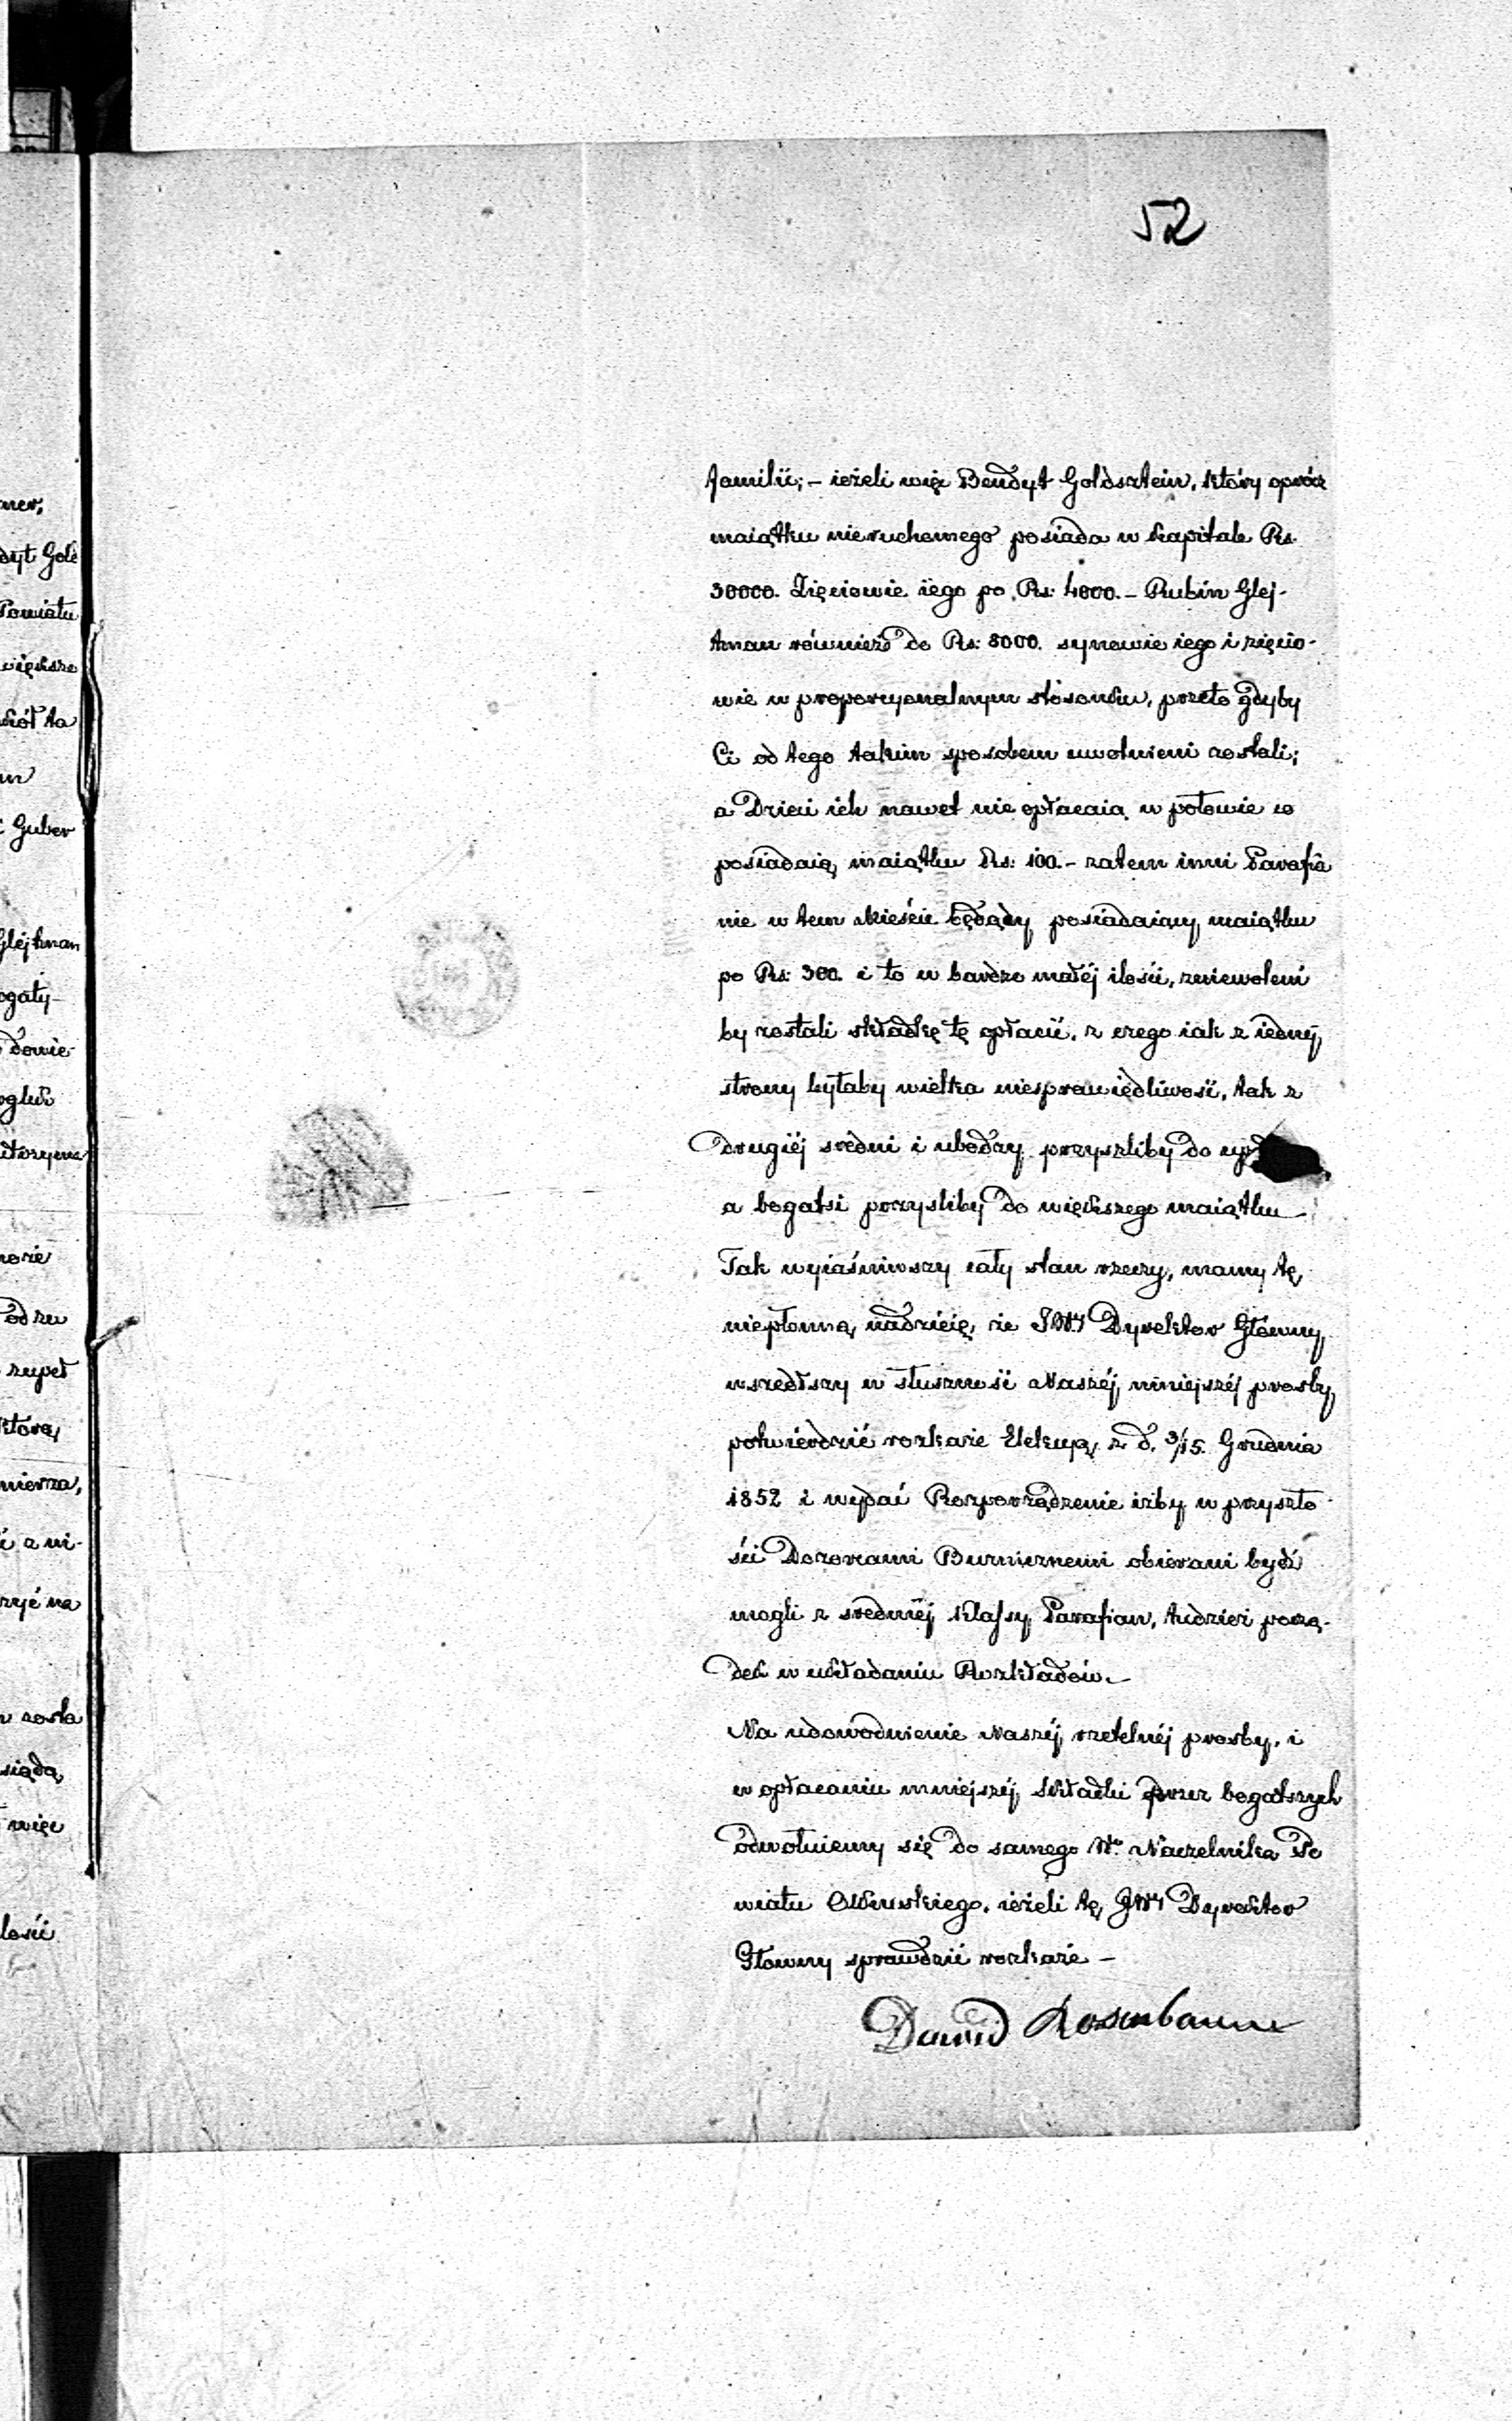 52
familii; – ieżeli więc Bendyt Goldsztein, który oprócz
maiątku nieruchomego posiada w kapitale Rs.
30000. Zięciowie iego po Rs: 4000. – Rubin Glej-
tman również do Rs: 8000. synowie iego i zięcio-
wie w proporcyonalnym stósonku, przeto gdyby
Ci od tego takim sposobem uwolnieni zostali;
a Dzieci ich nawet nie opłacaią w połowie co
posiadaią maiątku Rs: 100. – zatem inni Parafia
nie w tem Mieście będący posiadaiący maiątku
po Rs: 300. i to w bardzo małéj ilości, zniewoleni
by zostali składkę tę opłacić, z czego iak z iednéj
strony byłaby wielka niesprawiedliwość, tak z
drugiéj średni i ubodzy przyszliby do
a bogatsi przyszliby do większego maiątku –
Tak wyiaśniwszy cały stan rzeczy, mamy tę
niepłonną nadzieię, że JWy Dyrektor Główny
wszedłszy w słuszność Naszéj niniejszéj prosby,
potwierdzić rozkaże Elekcyą z d. 3/15. Grudnia
1852 i wydać Rozporządzenie iżby w przyszło
ści Dozorcami Bużnicznemi obierani bydź
mogli z średniéj Klassy Parafian, tudzież porzą-
dek w układaniu Rozkładów. –
Na udowodnienie Naszéj rzetelnéj prosby, i
w opłacaniu mniejszéj Składki przez bogatszych
odwołuiemy się do samego Wo Naczelnika Po
wiatu Olkuskiego, ieżeli tę JWy Dyrektor
Główny sprawdzić rozkaże –
Dawid Rosenbaum